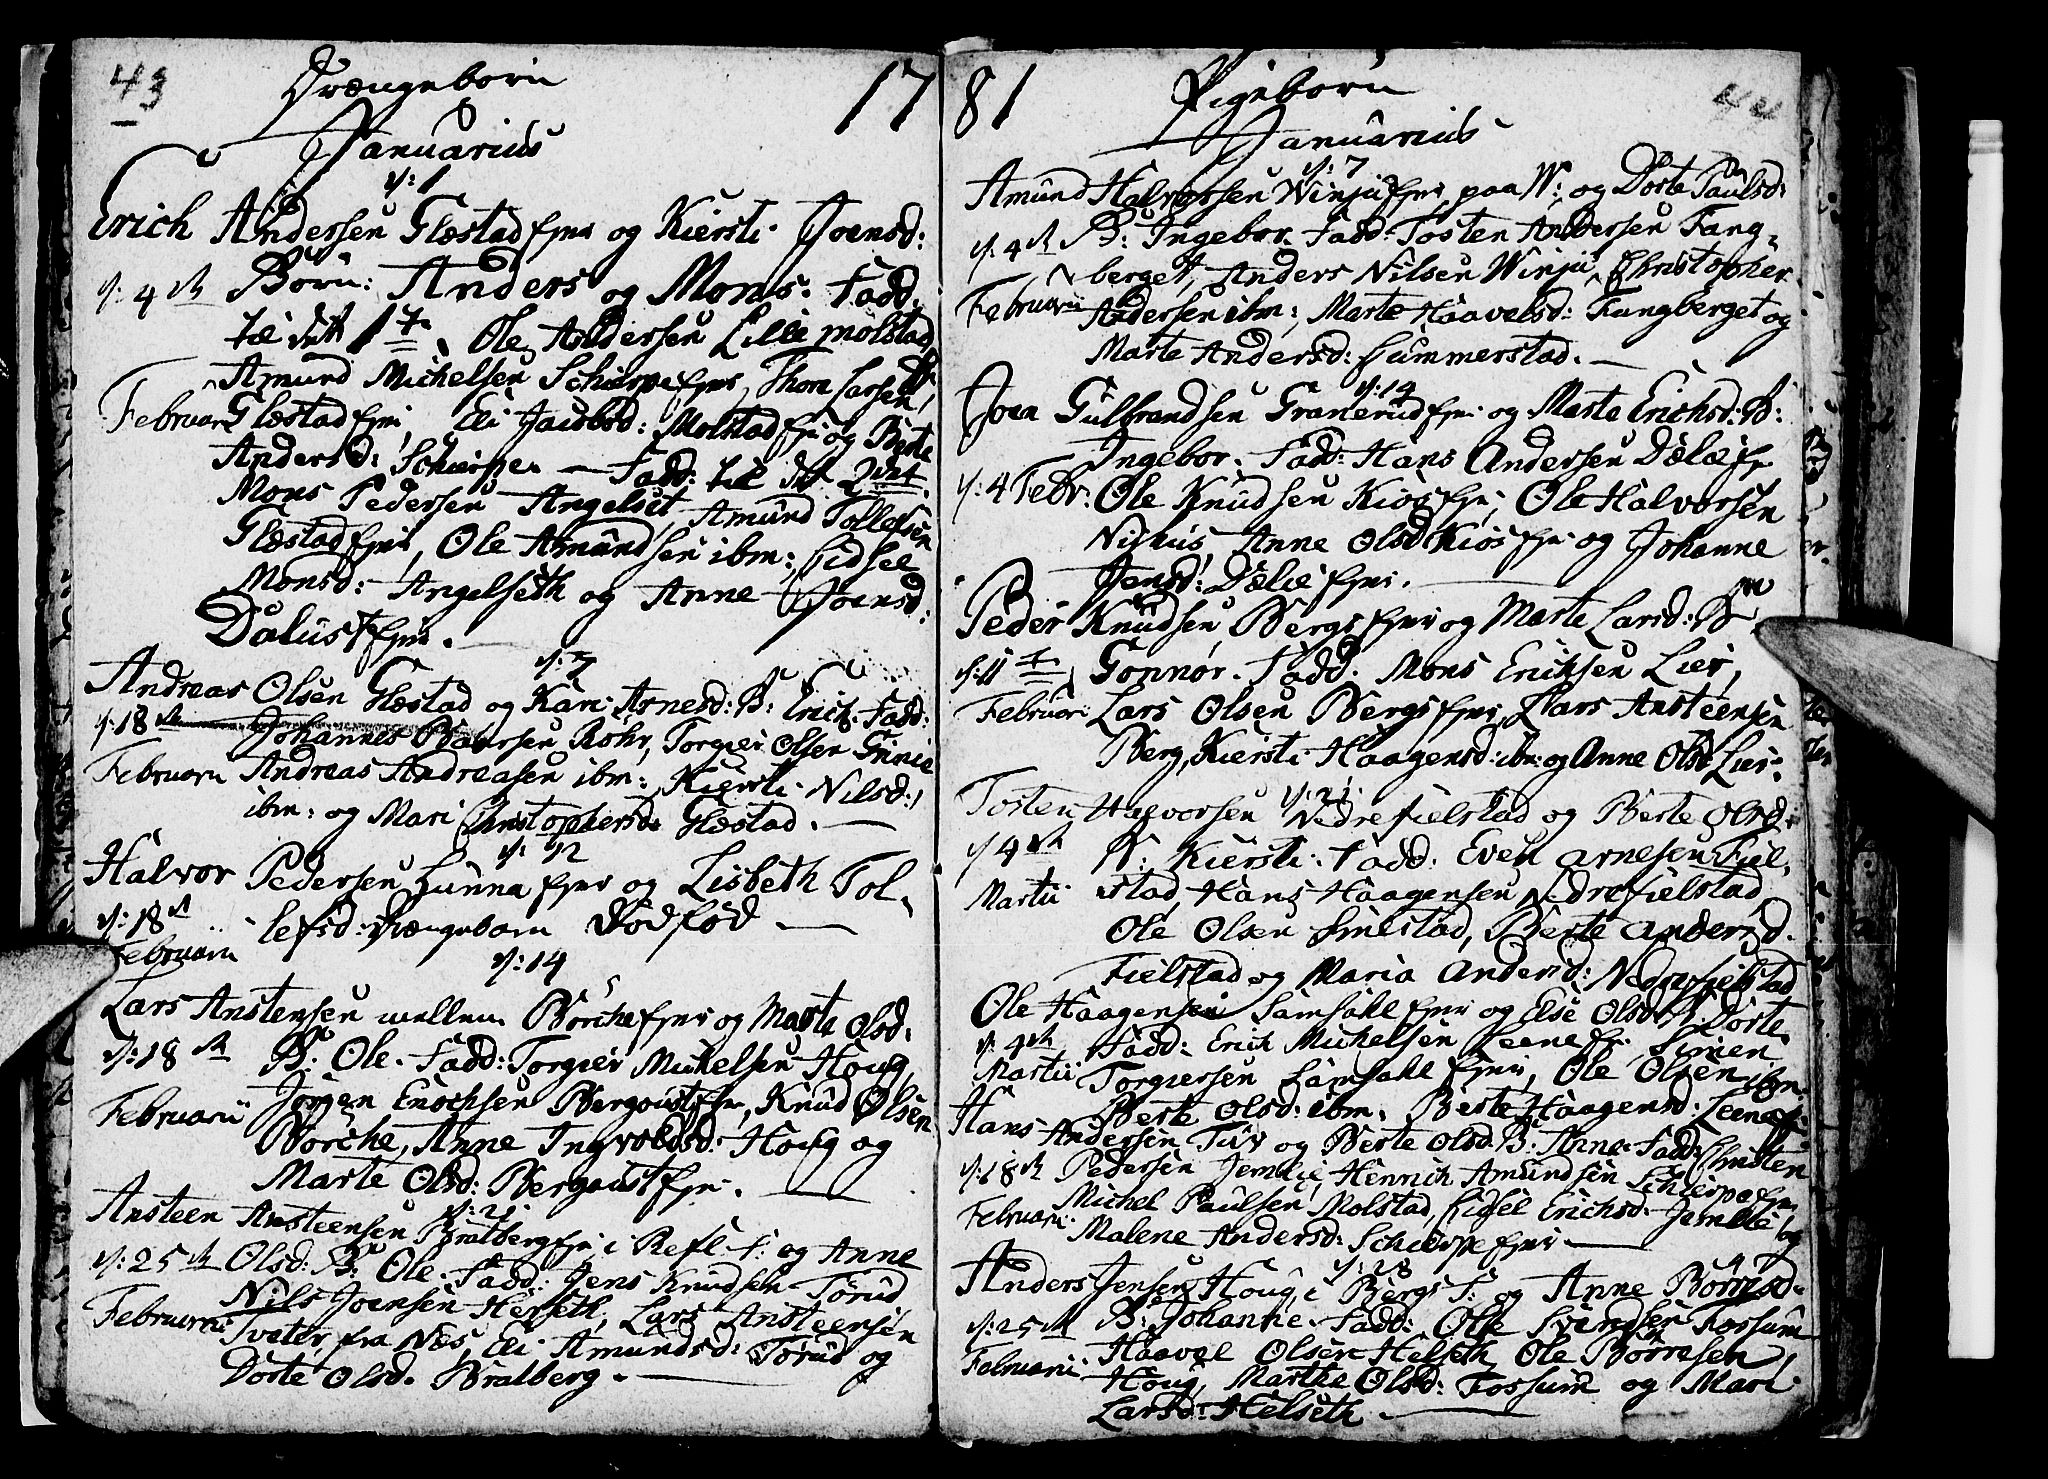 43 Drængebørn 17
Januarius
d: 1
Erich Andersen Glæstad ejer og Kiersti Joensd:
d: 4de Børn: Anders og Mons: Fadd:
til det 1te Ole Andersen Lille Molstad,
Amund Michelsen Schierpe ejer, Thore Larsen
Februarii Glæstad ejer, Eli Jacobsd: Molstad ejer og Berte
Andersd: Schierpe. — Fadd: til det 2det
Mons Pedersen Angelset, Amund Tollefsen
Glæstad ejer, Ole Amundsen ibm:, Sidsel
Monsd: Angelseth og Anne Joensd:
Dalus ejer. —
d: 7
Andreas Olsen Glæstad og Kari Arnesd: B: Erich. Fadd:
d: 18de Johannes Baarsen Rohr, Torgier Olsen Grinie
Februarii Andreas Andreasen ibm:, Kiersti Nilsd:
ibm: og Mari Christophersd: Glæstad. —
d: 12
Halvor Pedersen Lunna ejer og Lisbeth Tol-
d: 18de lefsd: Drængebarn Dødfød —
Februarii
d: 14
Lars Ansteensen mellem Børche ejer og Marte Olsd:
d: 18de B: Ole. Fadd: Torgier Michelsen Houg,
Jørgen Enochsen Bergquist ejer, Knud Olsen
Februarii
Børche, Anne Ingvoldsd: Houg og
Marte Olsd: Bergquist ejer. —
d: 21
Ansteen Ansteensen Bratberg ejer i Refl. F: og Anne
d: 25de Olsd: B: Ole. Fadd: Jens Knudsen Torud
Nils Joensen Herseth, Lars Ansteensen
Februarii Tvater, fra Næs, Eli Amundsd: Torud og
Dorte Olsd. Bratberg. —
81 Pigebørn 44
Januarius
d: 7
Amund Halvorsen Winju ejer paa W: og Dorte Paulsd:
d: 4de B: Ingebor. Fadd: Tosten Andersen Fang-
berget, Anders Nilsen Winju, Christopher
Februarii Andersen ibm:, Marte Haavelsd: Fangberget og
Marte Andersd: Summerstad. —
d: 14
Joen Gulbrandsen Granerud ejer og Marte Erichsd: B:
Ingebor. Fadd: Hans Andersen Dælie ejer
d: 4 Febr: Ole Knudsen Kios ejer, Ole Halvorsen
Nyhus, Anne Olsd Kios ejer og Johanne
Jensd: Dælie ejer. —
Peder Knudsen Bergs ejer og Marte Larsd: B
d: 11te Gonnør. Fadd: Mons Erichsen Lier,
Februarii Lars Olsen Bergs ejer, Lars Ansteensen
Berg, Kiersti Haagensd: ibm: og Anne Olsd Lier.
d: 21
Tosten Halvorsen Nedrefielstad og Berte Olsd:
d 4de B: Kiersti. Fadd: Even Arnesen Fiel-
Martii stad, Hans Haagensen Nedrefielstad,
Ole Olsen Smestad, Berte Andersd.
Fielstad og Maria Andersd: Nedrefielstad
Ole Haagensen Samsahl ejer og Else Olsd B: Dorte.
d: 4de Fadd: Erich Michelsen Leene ejer, Simen
Martii Torgiersen Samsahl ejer, Ole Olsen ibm.
Berte Olsd: ibm. Berte Haagensd: Leene ejer.
Hans Andersen Tuv og Berte Olsd B: Anne. Fadd: Christen
d: 18de Pedersen Jemlie, Henrich Amundsen Schierpe ejer,
Michel Paulsen Molstad, Sidsel Erichsd: Jemlie og
Februarii Malene Andersd: Schierpe ejer —
d: 28
Anders Jensen Houg i Bergs F: og Anne Børresd.
d: 25de B: Johanne. Fadd: Ole Svendsen Fossum
Februarii Haavel Olsen Helseth, Ole Børresen
Houg, Marthe Olsd: Fossum og Mari
Larsd: Helseth. —